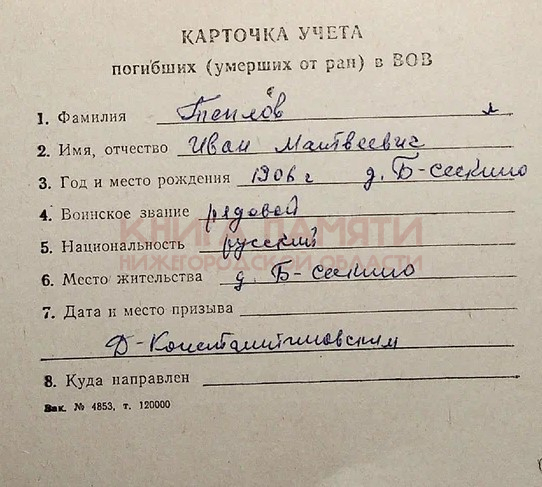 КАРТОЧКА УЧЕТА
погибших (умерших от ран) в ВОВ
1. Фамилия Теплов
2. Имя, отчество Иван Матвеевич
3. Год и место рождения 1906 г д. Б-Сескино
4. Воинское звание рядовой
КНИГА ПАМЯТИ
5. Национальность русский
НИЖЕГОРОДСКОЙ ОБЛАСТИ
6. Место жительства д. Б-Сескино
7. Дата и место призыва
Д-Константиновским
8. Куда направлен
Зак. № 4853, т. 120000